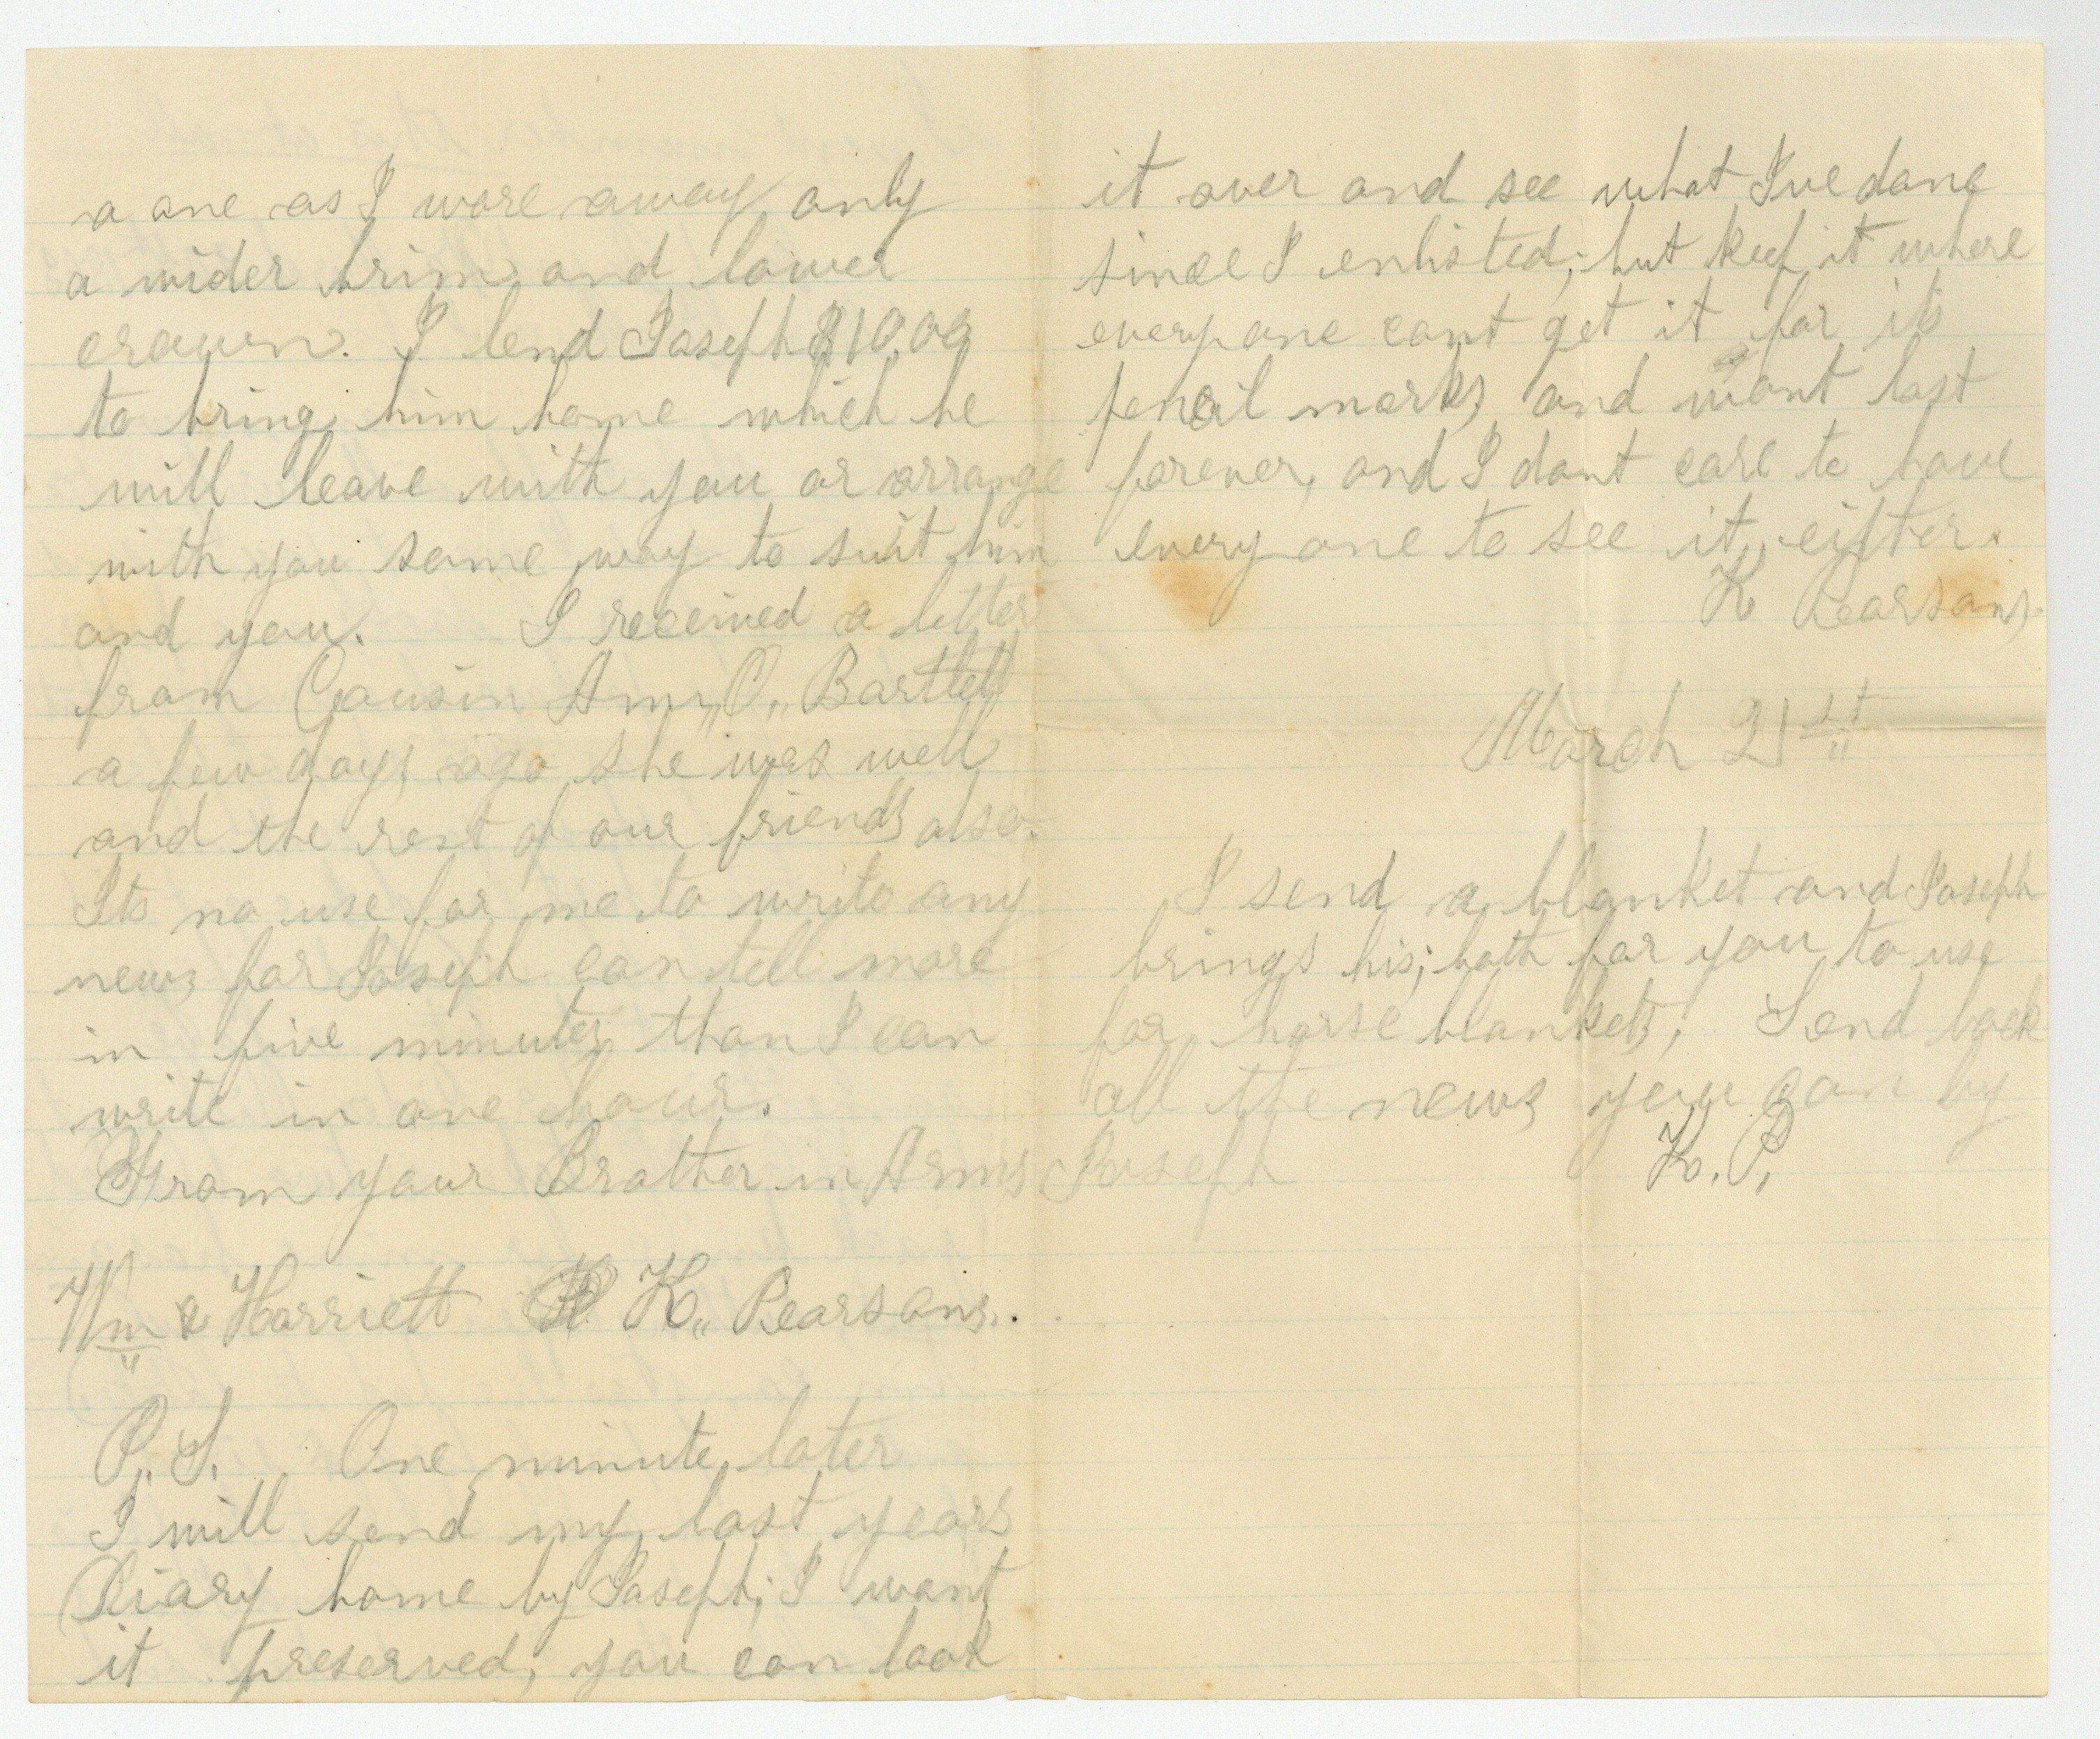 a one as I wore away only
a wider brim and lower
crown. I lend Joseph $10.00
to bring him home which he
will leave with you or arrange
with you some way to suit him
and you. I received a letter
from Cousin Am,, O,, Bartlett
a few days ago she was well
and the rest of our friends also.
Its no use for me to write any
news for Joseph can tell more
in five minutes than I can
write in one hour.
From your Brother in Arms
Wm & Harriett K,, Pearsons.
P.S. One minute later
I will send my last years
Diary home by Joseph; I want
it preserved, you can look
it over and see what I've done
since I enlisted; but keep it where
everyone cant get it for its
pencil marks and wont last
forever, and I dont care to have
every one to see it, eifter.
K Pearsons
March 21st
I send a blanket and Joseph
brings his; both for you to use
for horse blankets; Send back
all the news you can by
Joseph K. P.